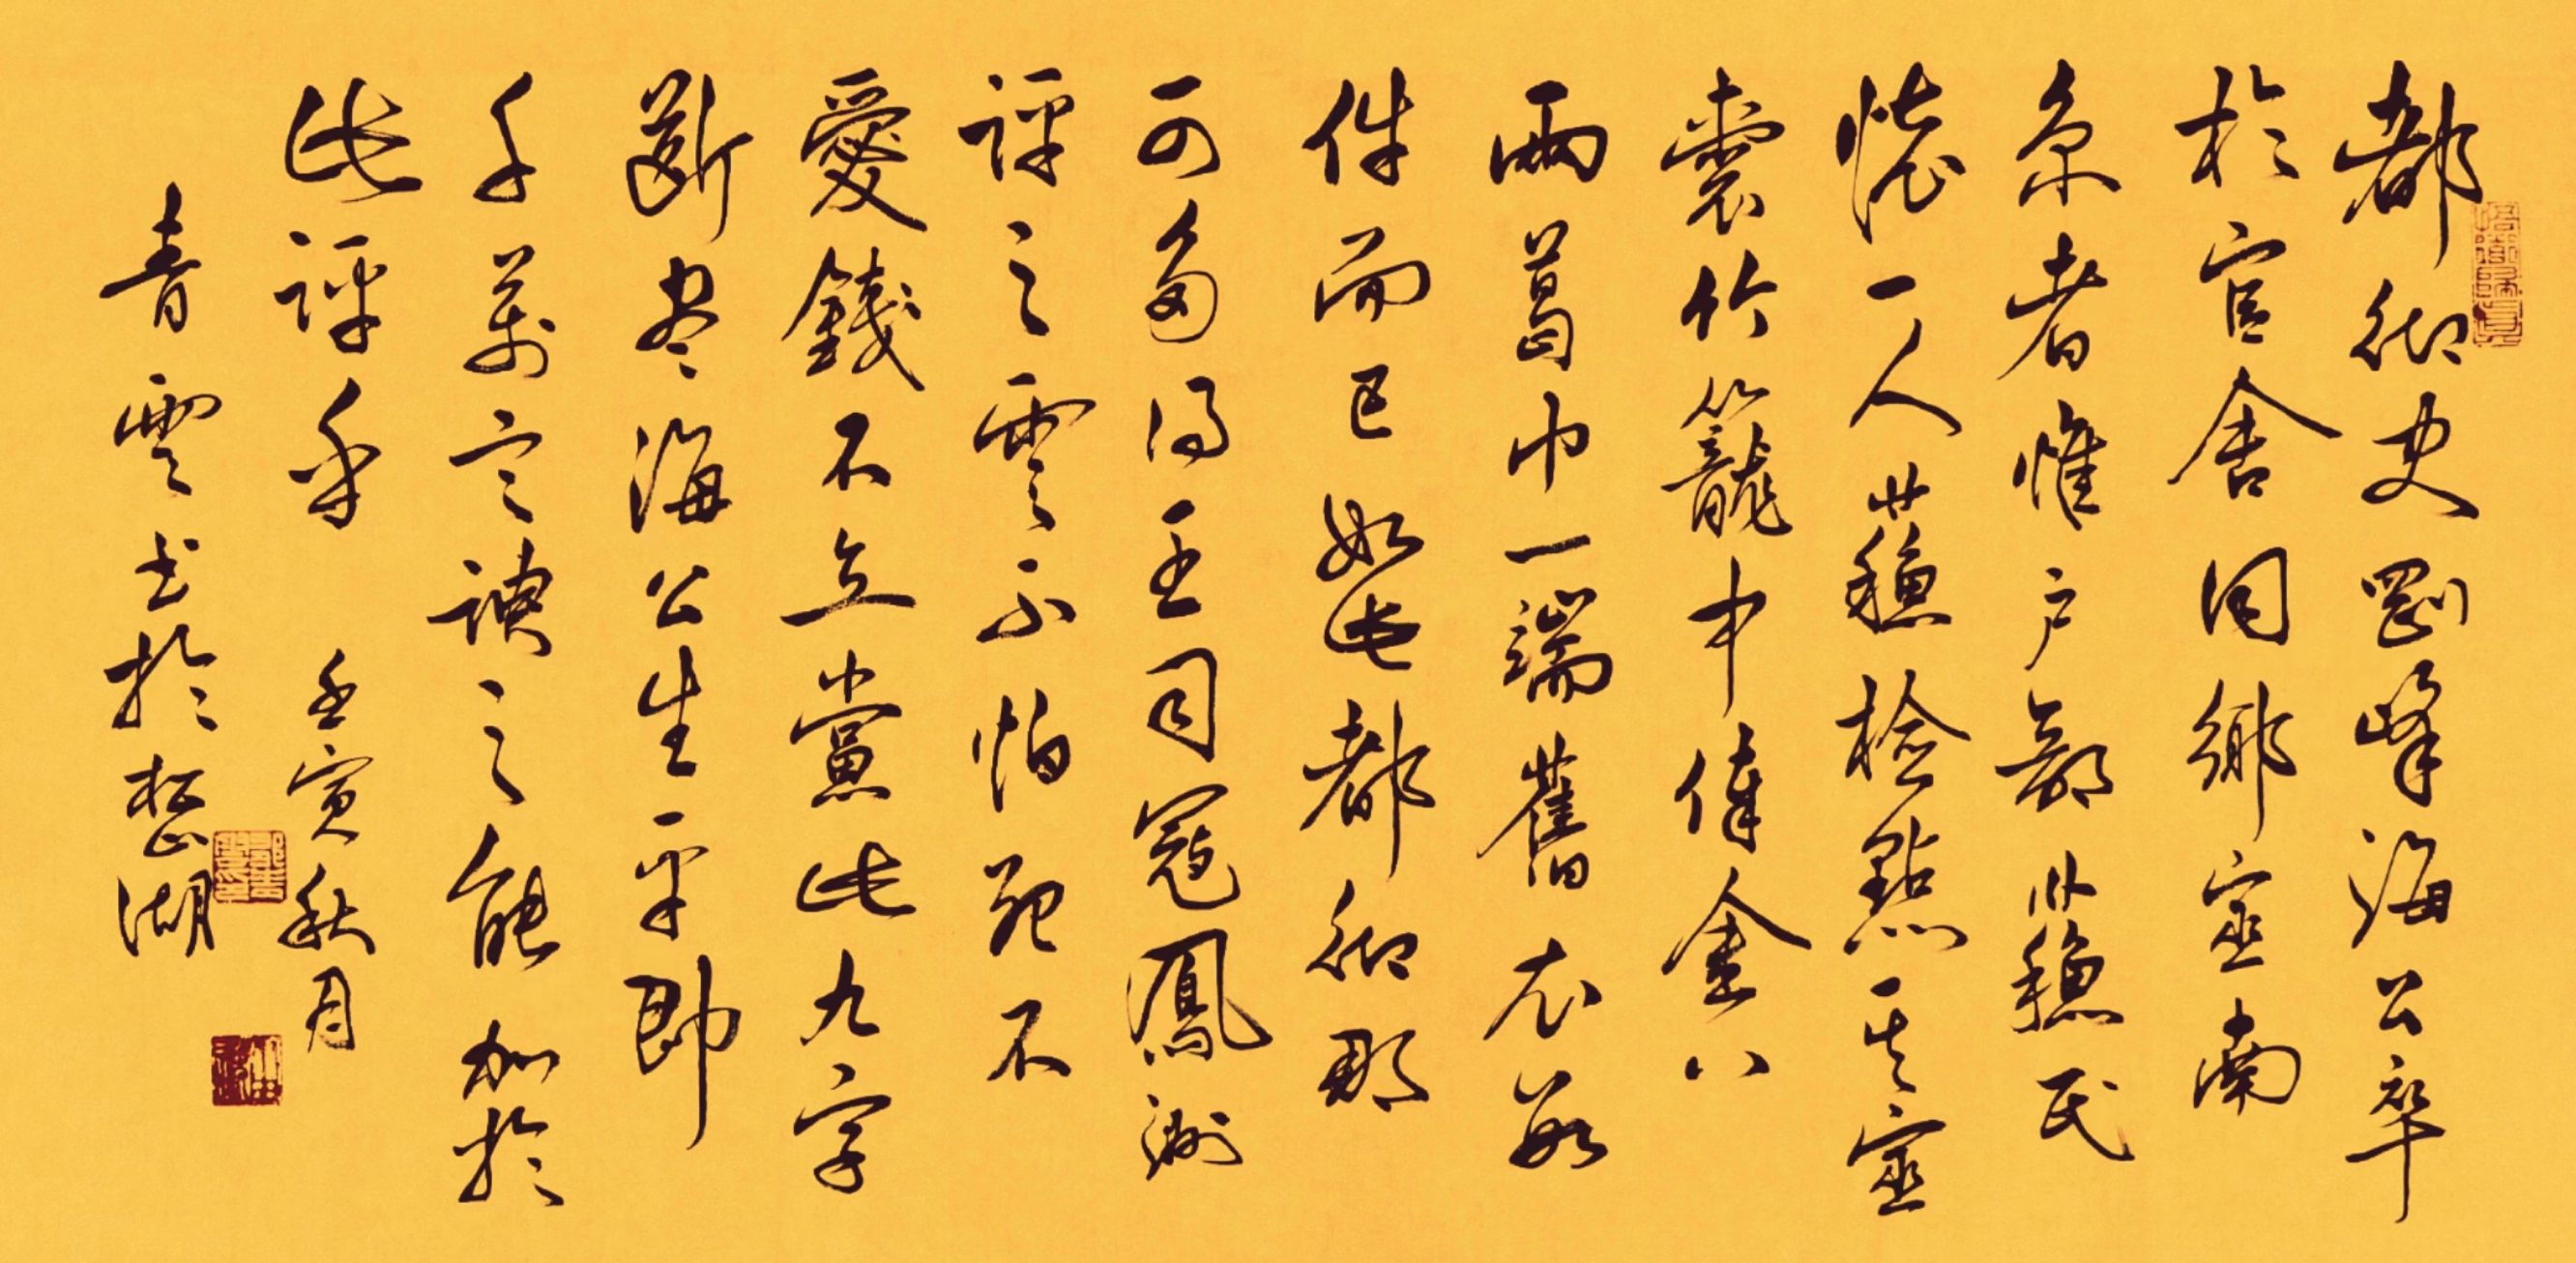 都御史剛峰海公卒
於官舍同鄉宦南
京者惟户部蘇民
懷一人蘇檢點其宦
囊竹籠中俸金八
兩葛巾一端舊衣數
件而已如此都御那
可多得王司寇鳳洲
評之雲不怕死不
愛錢不立黨此九字
斷尽海公生平即
千萬言諛之能加於
此評乎 壬寅秋月
青雲书於湖